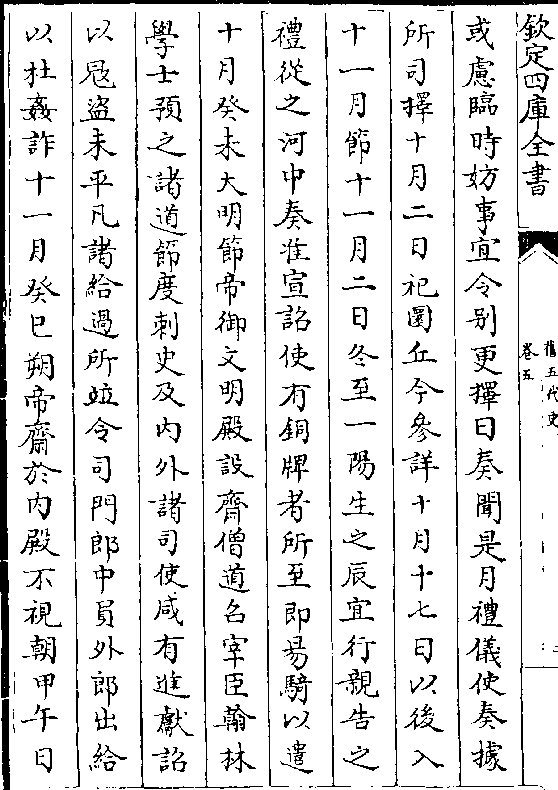 欽定四庫全書
舊五代史
卷五
或慮臨時妨事宜令別更擇日奏聞是月禮儀使奏據
所司擇十月二日祀圜丘今參詳十月十七日以後入
十一月節十一月二日冬至一陽生之辰宜行親告之
禮從之河中奏准宣詔使有銅牌者所至即易騎以遣
十月癸未大明節帝御文明殿設齋僧道召宰臣翰林
學士預之諸道節度刺史及內外諸司使咸有進獻詔
以寇盜未平凡諸給過所竝令司門郎中員外郎出給
以杜姦詐十一月癸巳朔帝齋於內殿不視朝甲午日